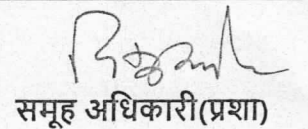 समूह अधिकारी(प्रशा)